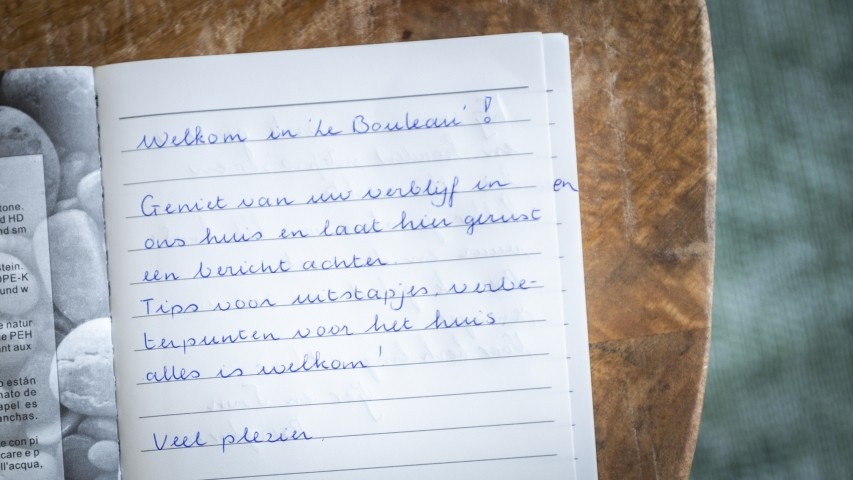 tone.
d HD
nd sm
tein.
OPE-K
und w
e natur
e PEH
nt aux
o están
nato de
apel es
anchas.
e con pi
care e p
ll'acqua,
Welkom in 'Le Bouleau' !
Geniet van uw verblijf in
ons huis en laat hier gerust
een bericht achter.
Tips voor uitstapjes, verbe-
terpunten voor het huis.
alles is welkom!
Veel plezier.
en